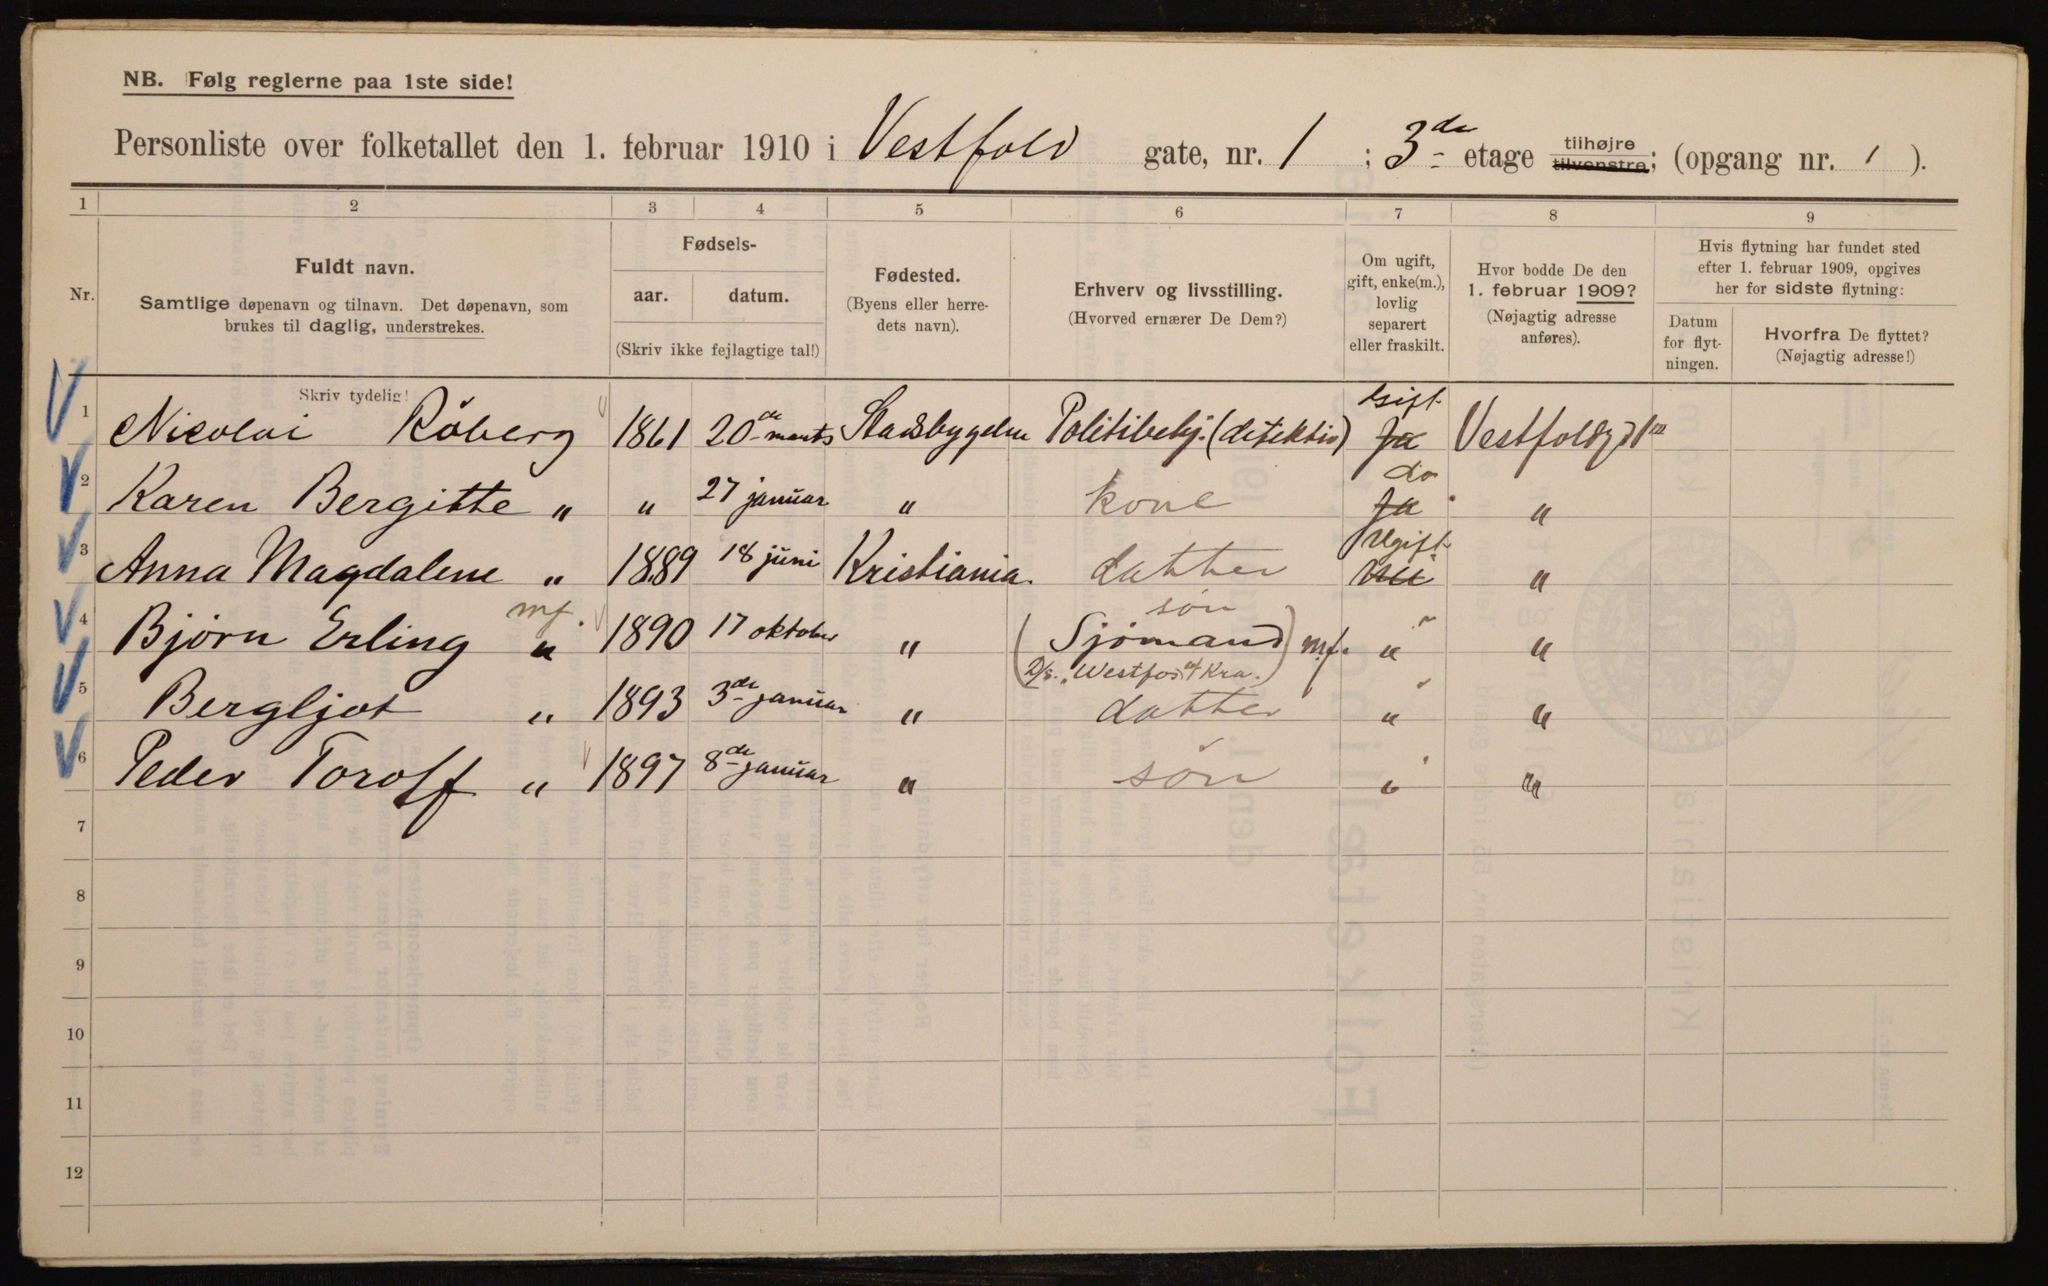 NB. Følg reglerne paa 1ste side!
Personliste over folketallet den 1. februar 1910 i Vestfold gate, nr. 1 ; 3de etage tilhøjre tilvenstre; (opgang nr. 1 ).
1 2 3 4 5 6 7 8 9
Nr.
Fuldt navn.
Samtlige døpenavn og tilnavn. Det døpenavn, som
brukes til daglig, understrekes.
Fødsels-
aar. datum.
(Skriv ikke fejlagtige tal!)
Fødested.
(Byens eller herre-
dets navn).
Erhverv og livsstilling.
(Hvorved ernærer De Dem?)
Om ugift,
gift, enke(m.),
lovlig
separert
eller fraskilt.
Hvor bodde De den
1. februar 1909?
(Nøjagtig adresse
anføres).
Hvis flytning har fundet sted
efter 1. februar 1909, opgives
her for sidste flytning:
Datum
for flyt-
ningen.
Hvorfra De flyttet?
(Nøjagtig adresse!)
Skriv tydelig!
Gift
1 Nicolai Röberg 1861 20de marts Stadsbygden Politibetj. (detektiv) Ja Vestfoldg 1
do
2 Karen Bergitte " " 27 januar " kone Ja "
Ugift
3 Anna Magdalene " 1889 18 juni Kristiania. datter nei "
mf. søn
4 Bjørn Erling " 1890 17 oktober " (Sjömand) mf. " "
D/s. "Westfos" af Kra.
5 Bergljot " 1893 3de januar " datter " "
6 Peder Toroff " 1897 8de januar " søn " "
7
8
9
10
11
12